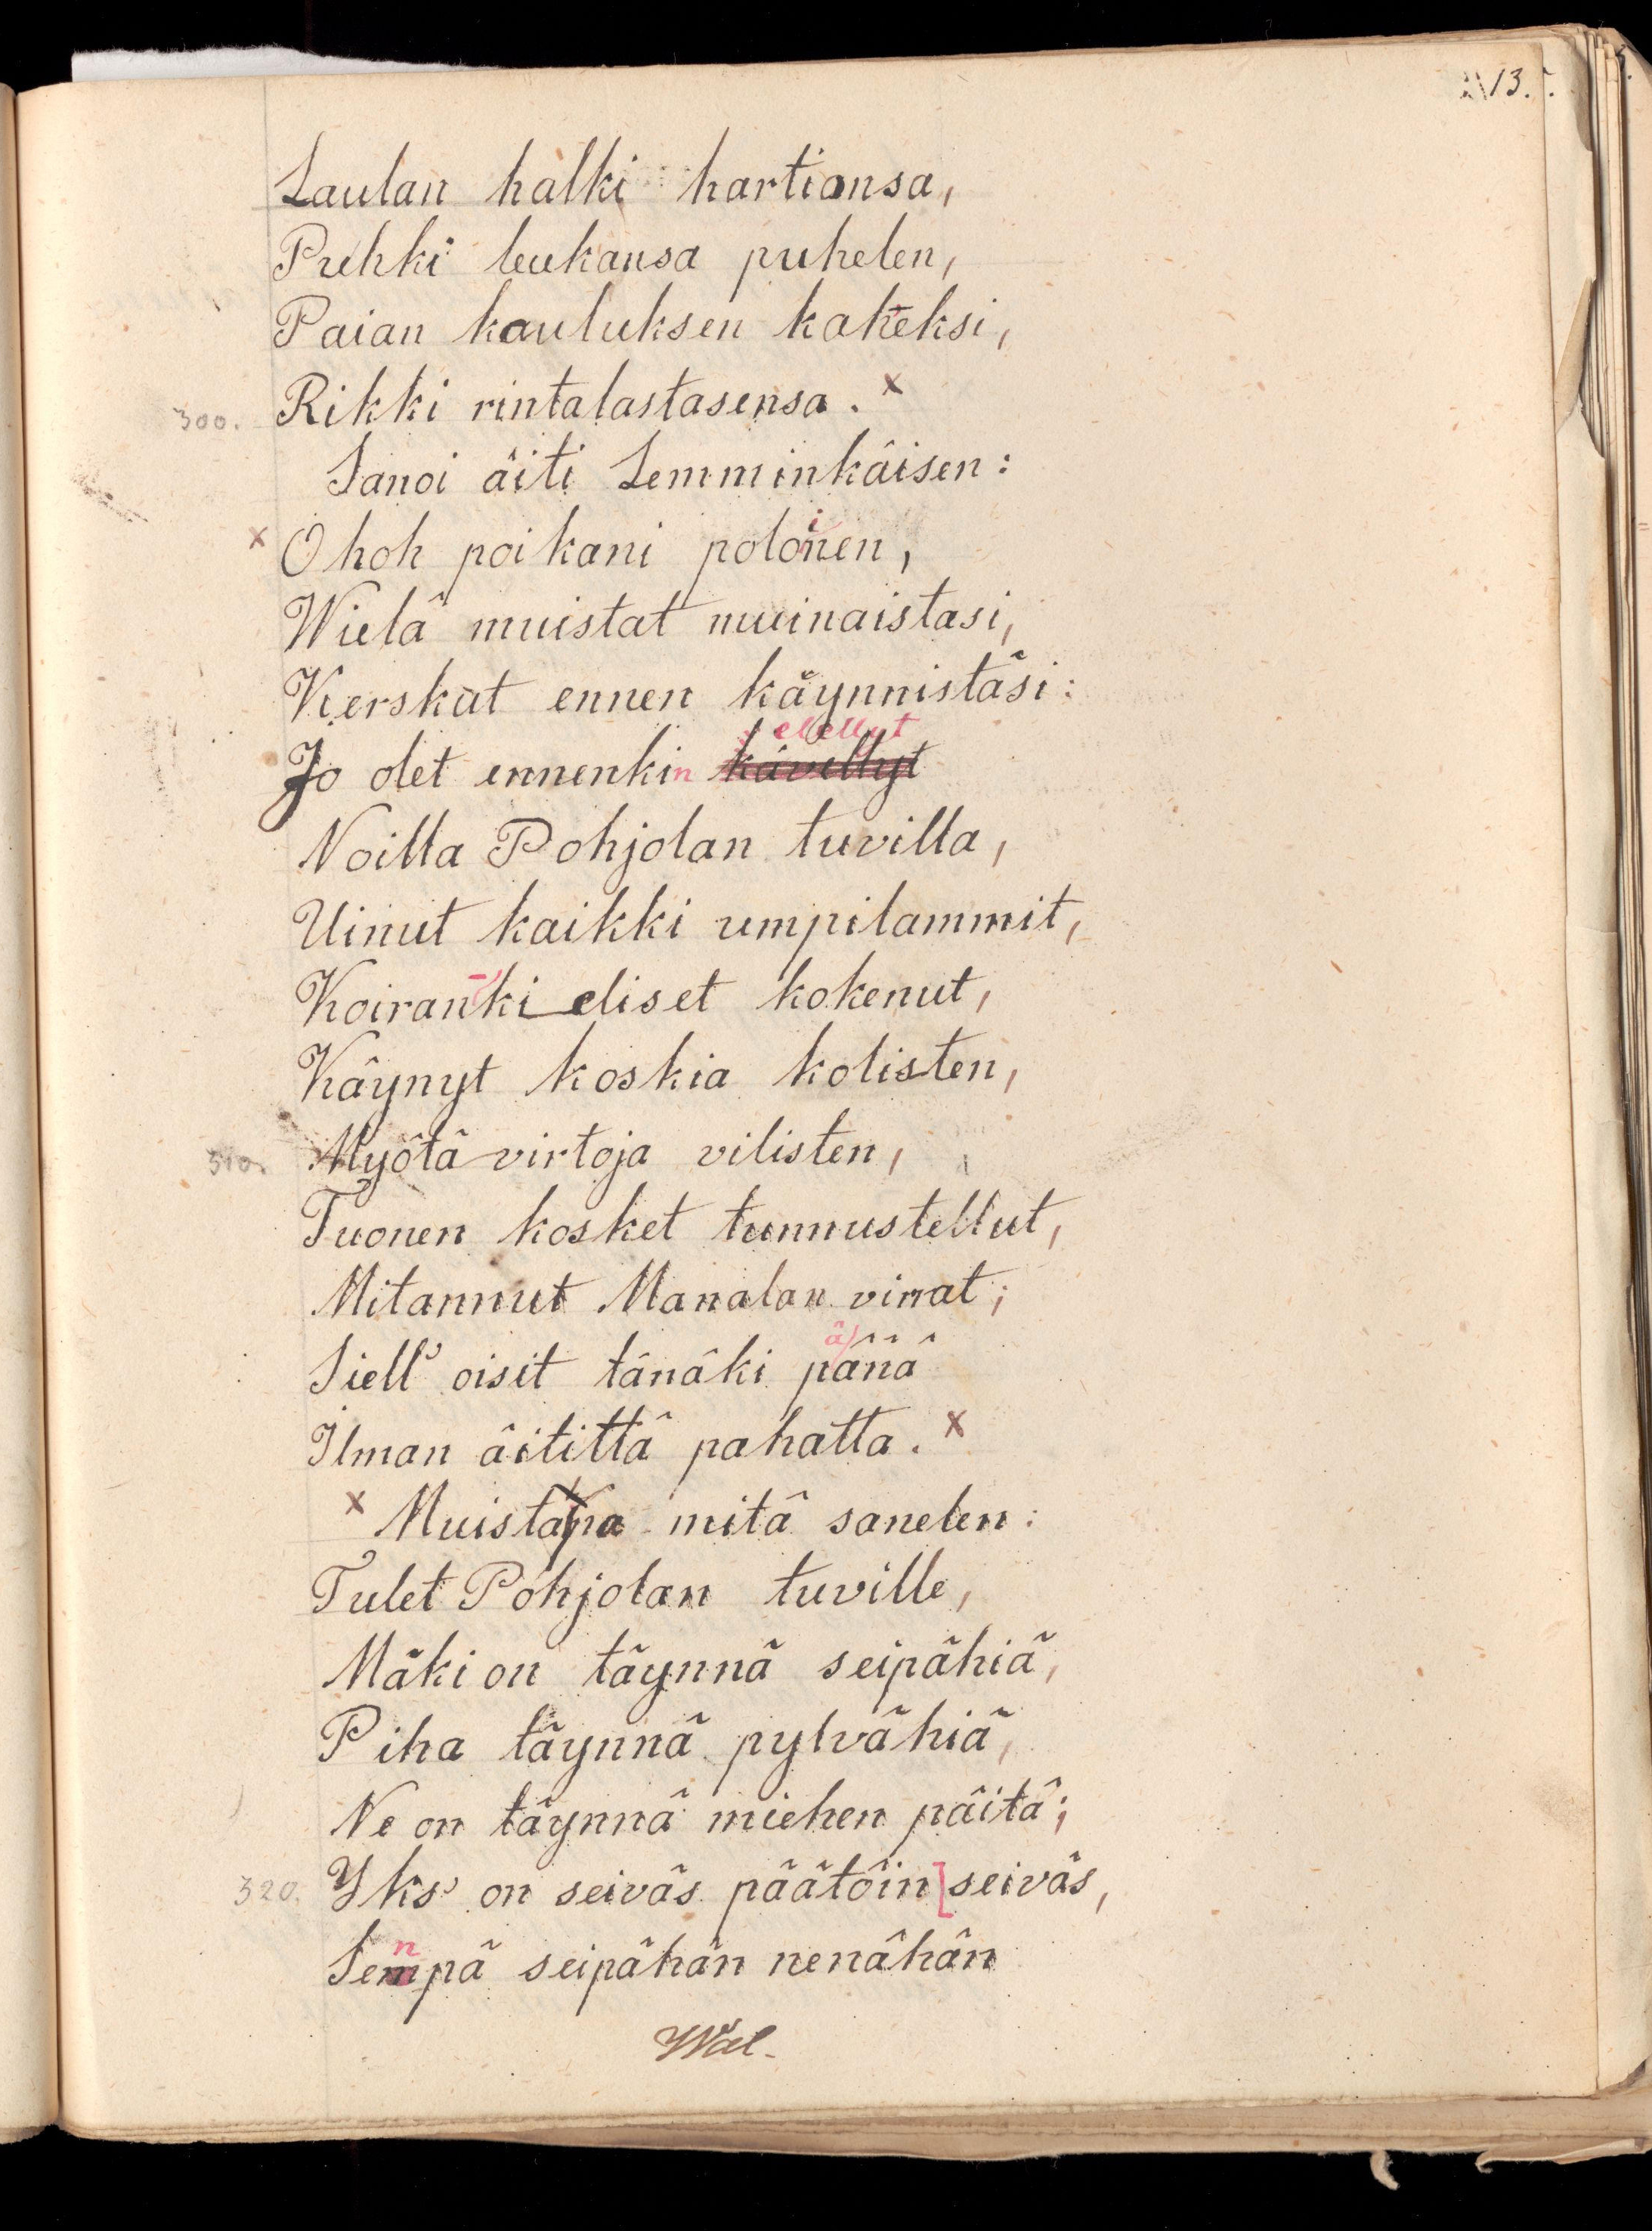 13.
Laulan halki hartionsa,
Puhki leukansa puhelen,
Paian kauluksen kaheksi,
300. Rikki rintalastasensa. x
Sanoi äiti Lemminkäisen:
x Ohoh poikani poloinen,
Wielä muistat muinaistasi,
Kerskat ennen käynnistäsi:
elellyt
Jo olet ennenkin kävellyt
Noilla Pohjolan tuvilla,
Uinut kaikki umpilammit,
Koiran-kieliset kokenut,
Käynyt koskia kolisten,
310. Myötä virtoja vilisten,
Tuonen kosket tunnustellut,
Mitannut Manalan virrat;
ä
Siell' oisit tänäki pänä
Ilman äitittä pahatta. x
x Muistapa mitä sanelen:
Tulet Pohjolan tuville,
Mäki on täynnä seipähiä,
Piha täynnä pylvähiä,
Ne on täynnä miehen päitä;
320. Yks' on seiväs päätöin[seiväs,
n
Sempä seipähän nenähän
Wal-